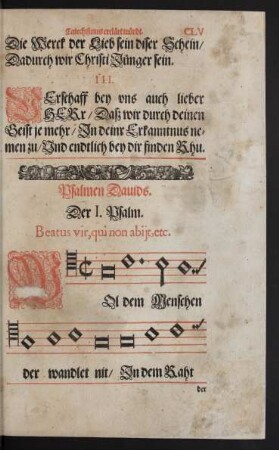 CLV
Die Werck der Lieb sein diser Schein/
Dadurch wir Christi Jünger sein.
III.
VErschaff bey vns auch lieber
HERr/ Daß wir durch deinen
Geist je mehr/ In deinr Erkanntnus ne-
men zu/ Vnd endtlich bey dir finden Rhu.
Psalmen Dauids.
Der I. Psalm.
Beatus vir, qui non abijt, etc.
WOl dem Menschen
der wandlet nit/ In dem Raht
der